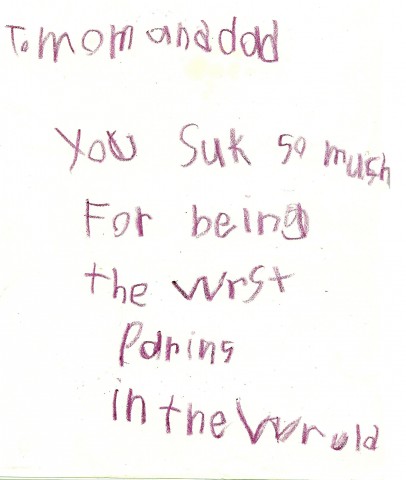 To mom and dad
You Suk so mush
For being
the wrst
Parins
in the wruld